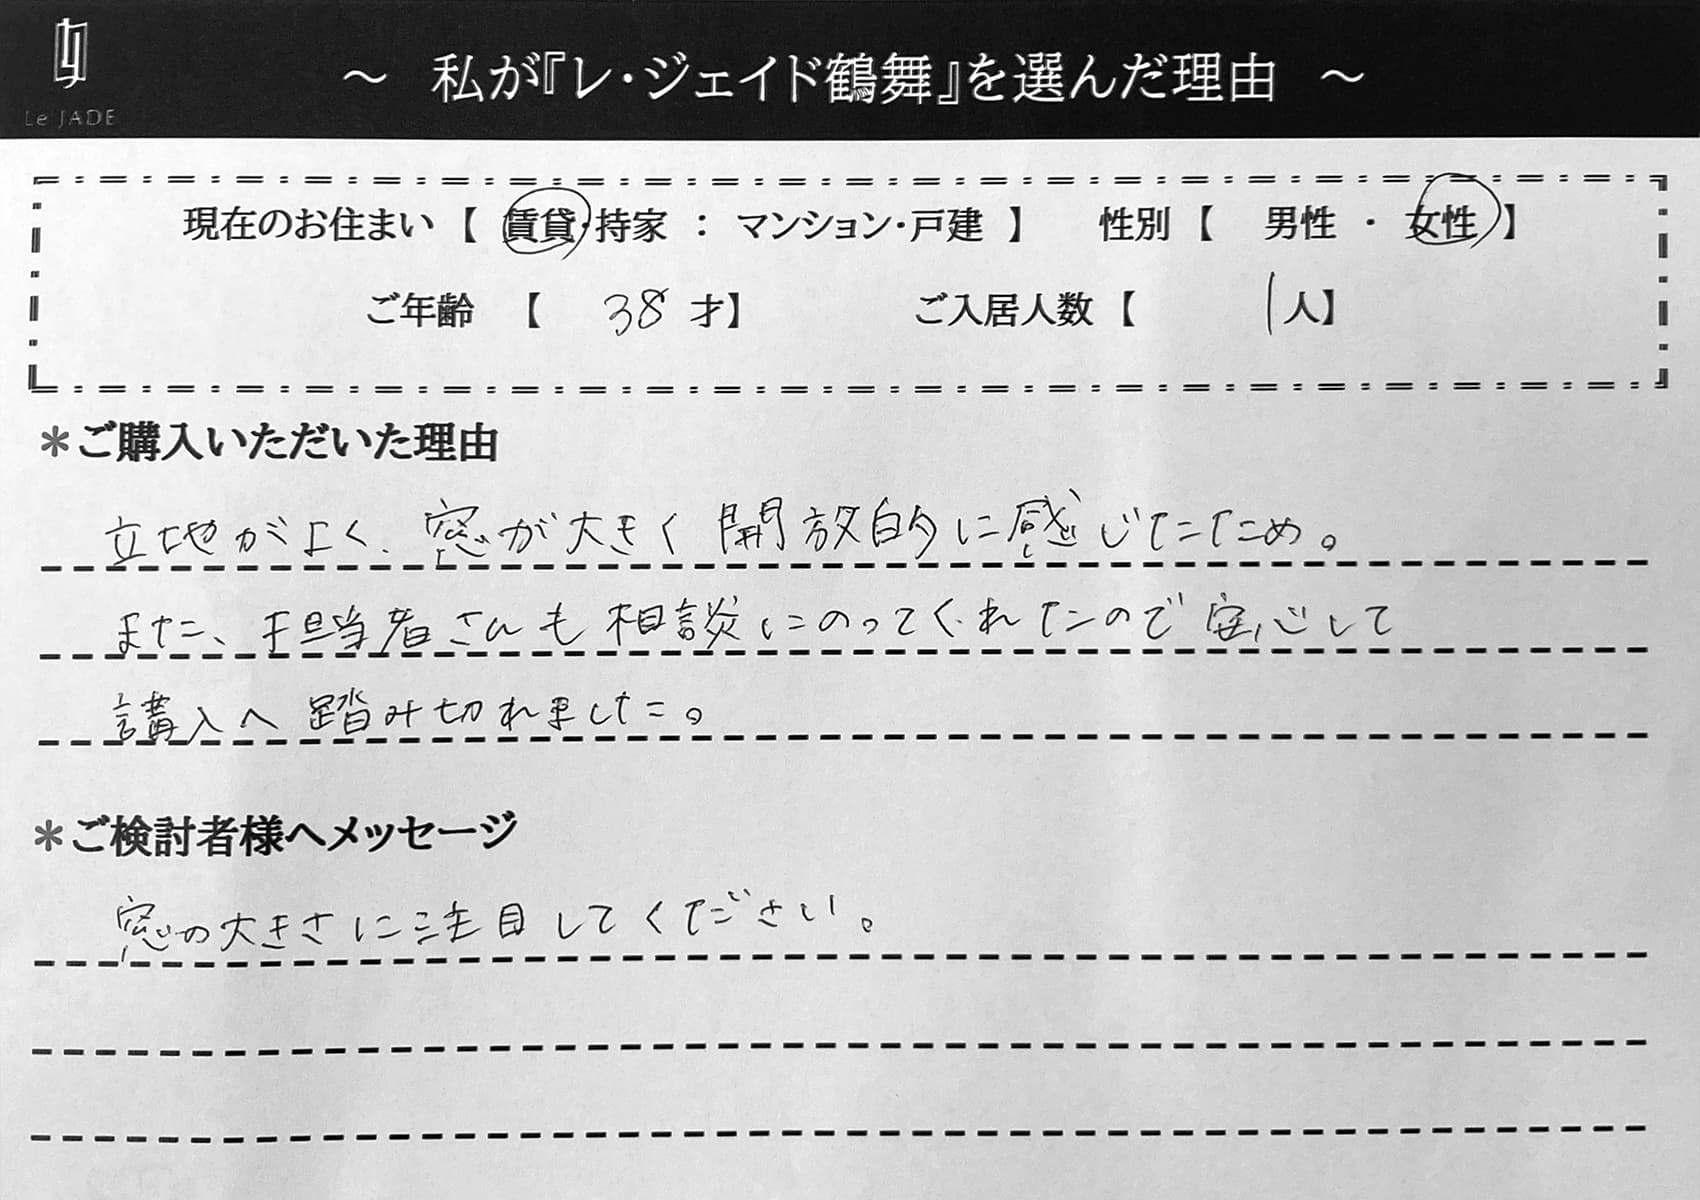 Le JADE
～ 私が『レ・ジェイド鶴舞』を選んだ理由 ～
現在のお住まい 【 賃貸・持家 ： マンション・戸建 】 性別 【 男性 ・ 女性 】
ご年齢 【 38 才】 ご入居人数 【 1 人】
＊ご購入いただいた理由
立地がよく、窓が大きく開放的に感じたため。
また、担当者さんも相談にのってくれたので安心して
講入へ踏み切れました。
＊ご検討者様へメッセージ
窓の大きさに注目してください。